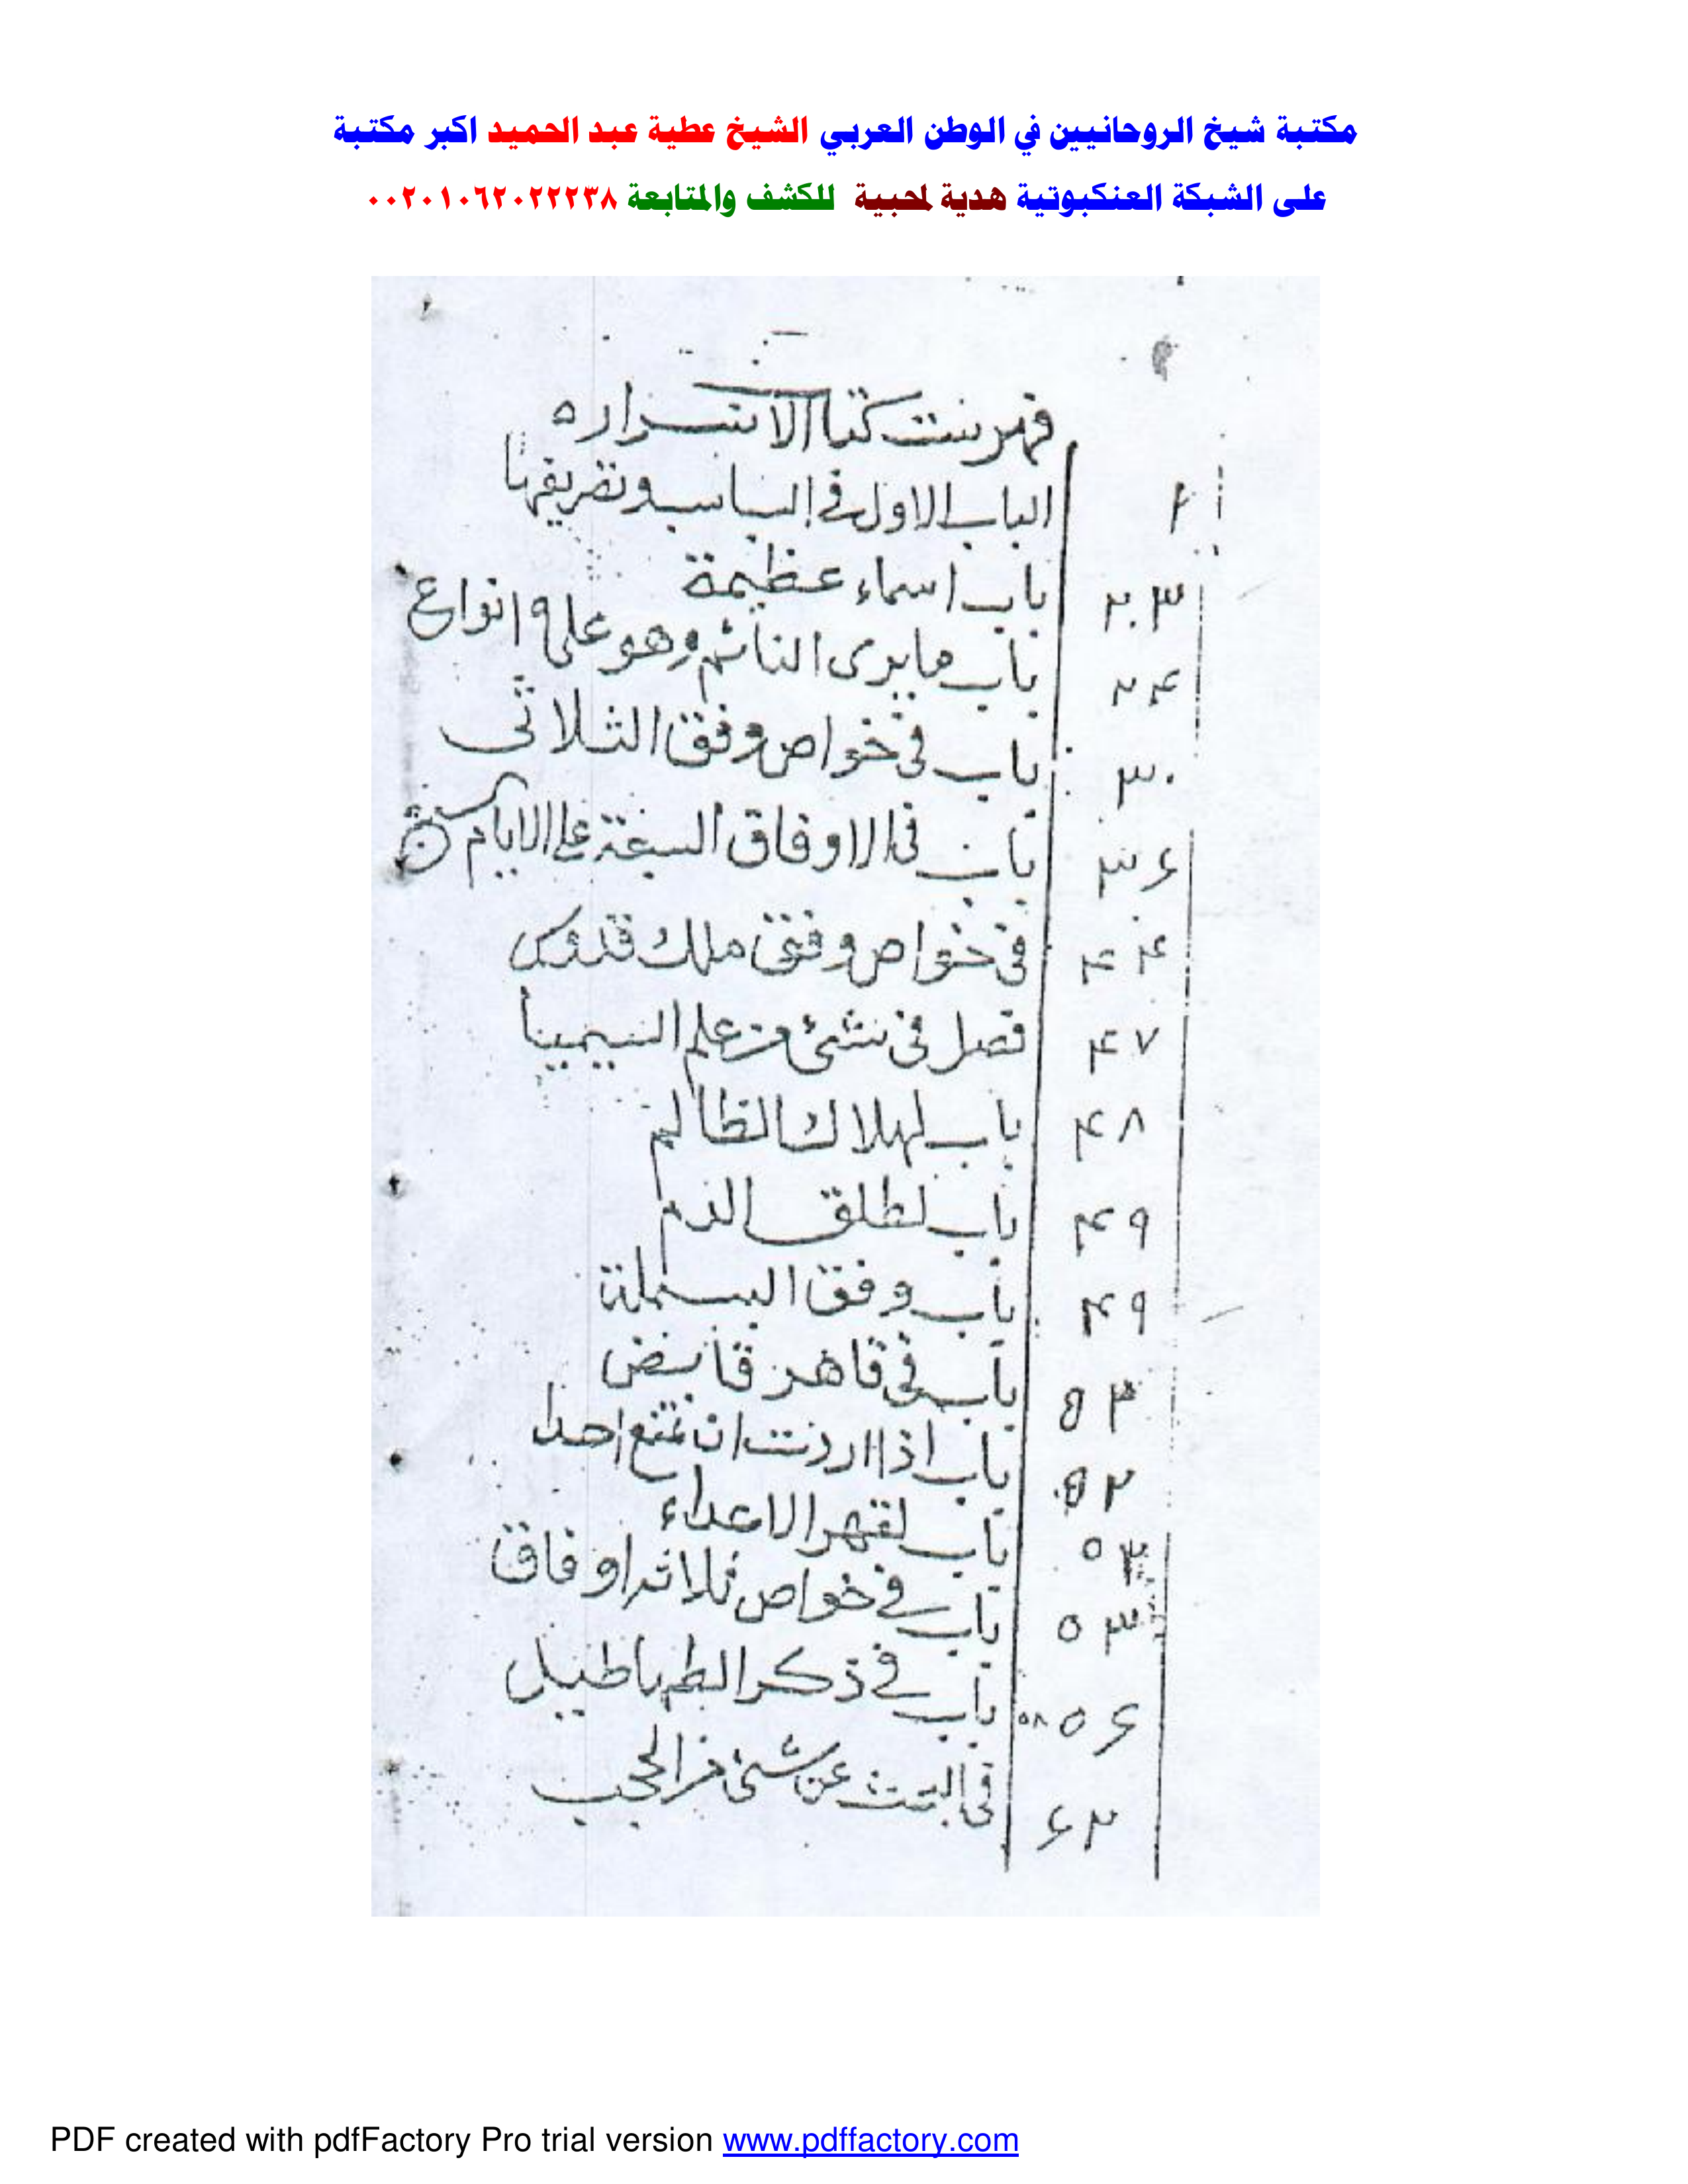 مكتبة شيخ الروحانيين في الوطن العربي الشيخ عطية عبد الحميد اكبر مكتبة
على الشبكة العنكبوتية هدية لمحبية للكشف والمتابعة ٠٠٢٠١٠٦٢٠٢٢٢٣٨
فهرست كتاب الاسرار
الباب الاول في البساسب وتصريفها
٢٣ باب اسماء عظيمة
٢۴ باب ما يرى النائم وهو على ٩ انواع
٣٠ باب في خواص وفق الثلاثى
٣۶ باب في الاوفاق السبعة على الايام
۴۴ في خواص وفق ملك قدوس
۴٧ فصل في شئ من علم السيميا
۴٨ باب لهلاك الظالم
۴٩ باب لطلق الدم
۴٩ باب وفق البسملة
باب في قاهر قابض
٥٢ باب اذا اردت ان تمنع احدا
٥٣ باب لقهر الاعداء
٥٣ باب في خواص ثلاثه اوفاق
٥۶ باب في ذكر الطهاطيل
۶٢ في البحث عن شئ من الحجب
PDF created with pdfFactory Pro trial version www.pdffactory.com